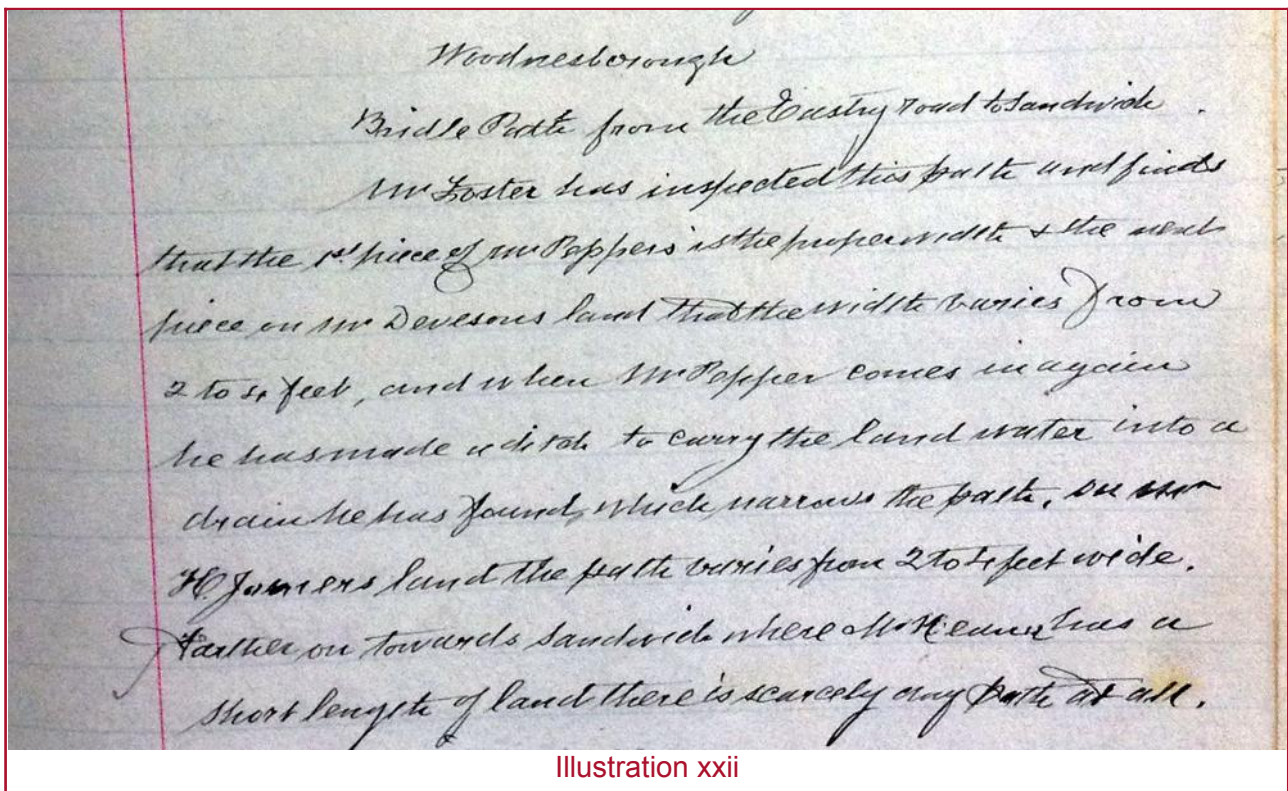 Woodnesborough
Bridle Path from the Eastry road to Sandwich.
Mr Foster has inspected this path and finds
that the 1st piece of Mr Peppers is the proper width & the next
piece on Mr Devesons land that the width varies from
2 to 4 feet, and when Mr Pepper comes in again
he has made a ditch to carry the land water into a
drain he has found, which narrows the path. On Mr
H. land the path varies from 2 to 4 feet wide.
Farther on towards Sandwich where Mr has a
short length of land there is scarcely any path at all.
Illustration xxii